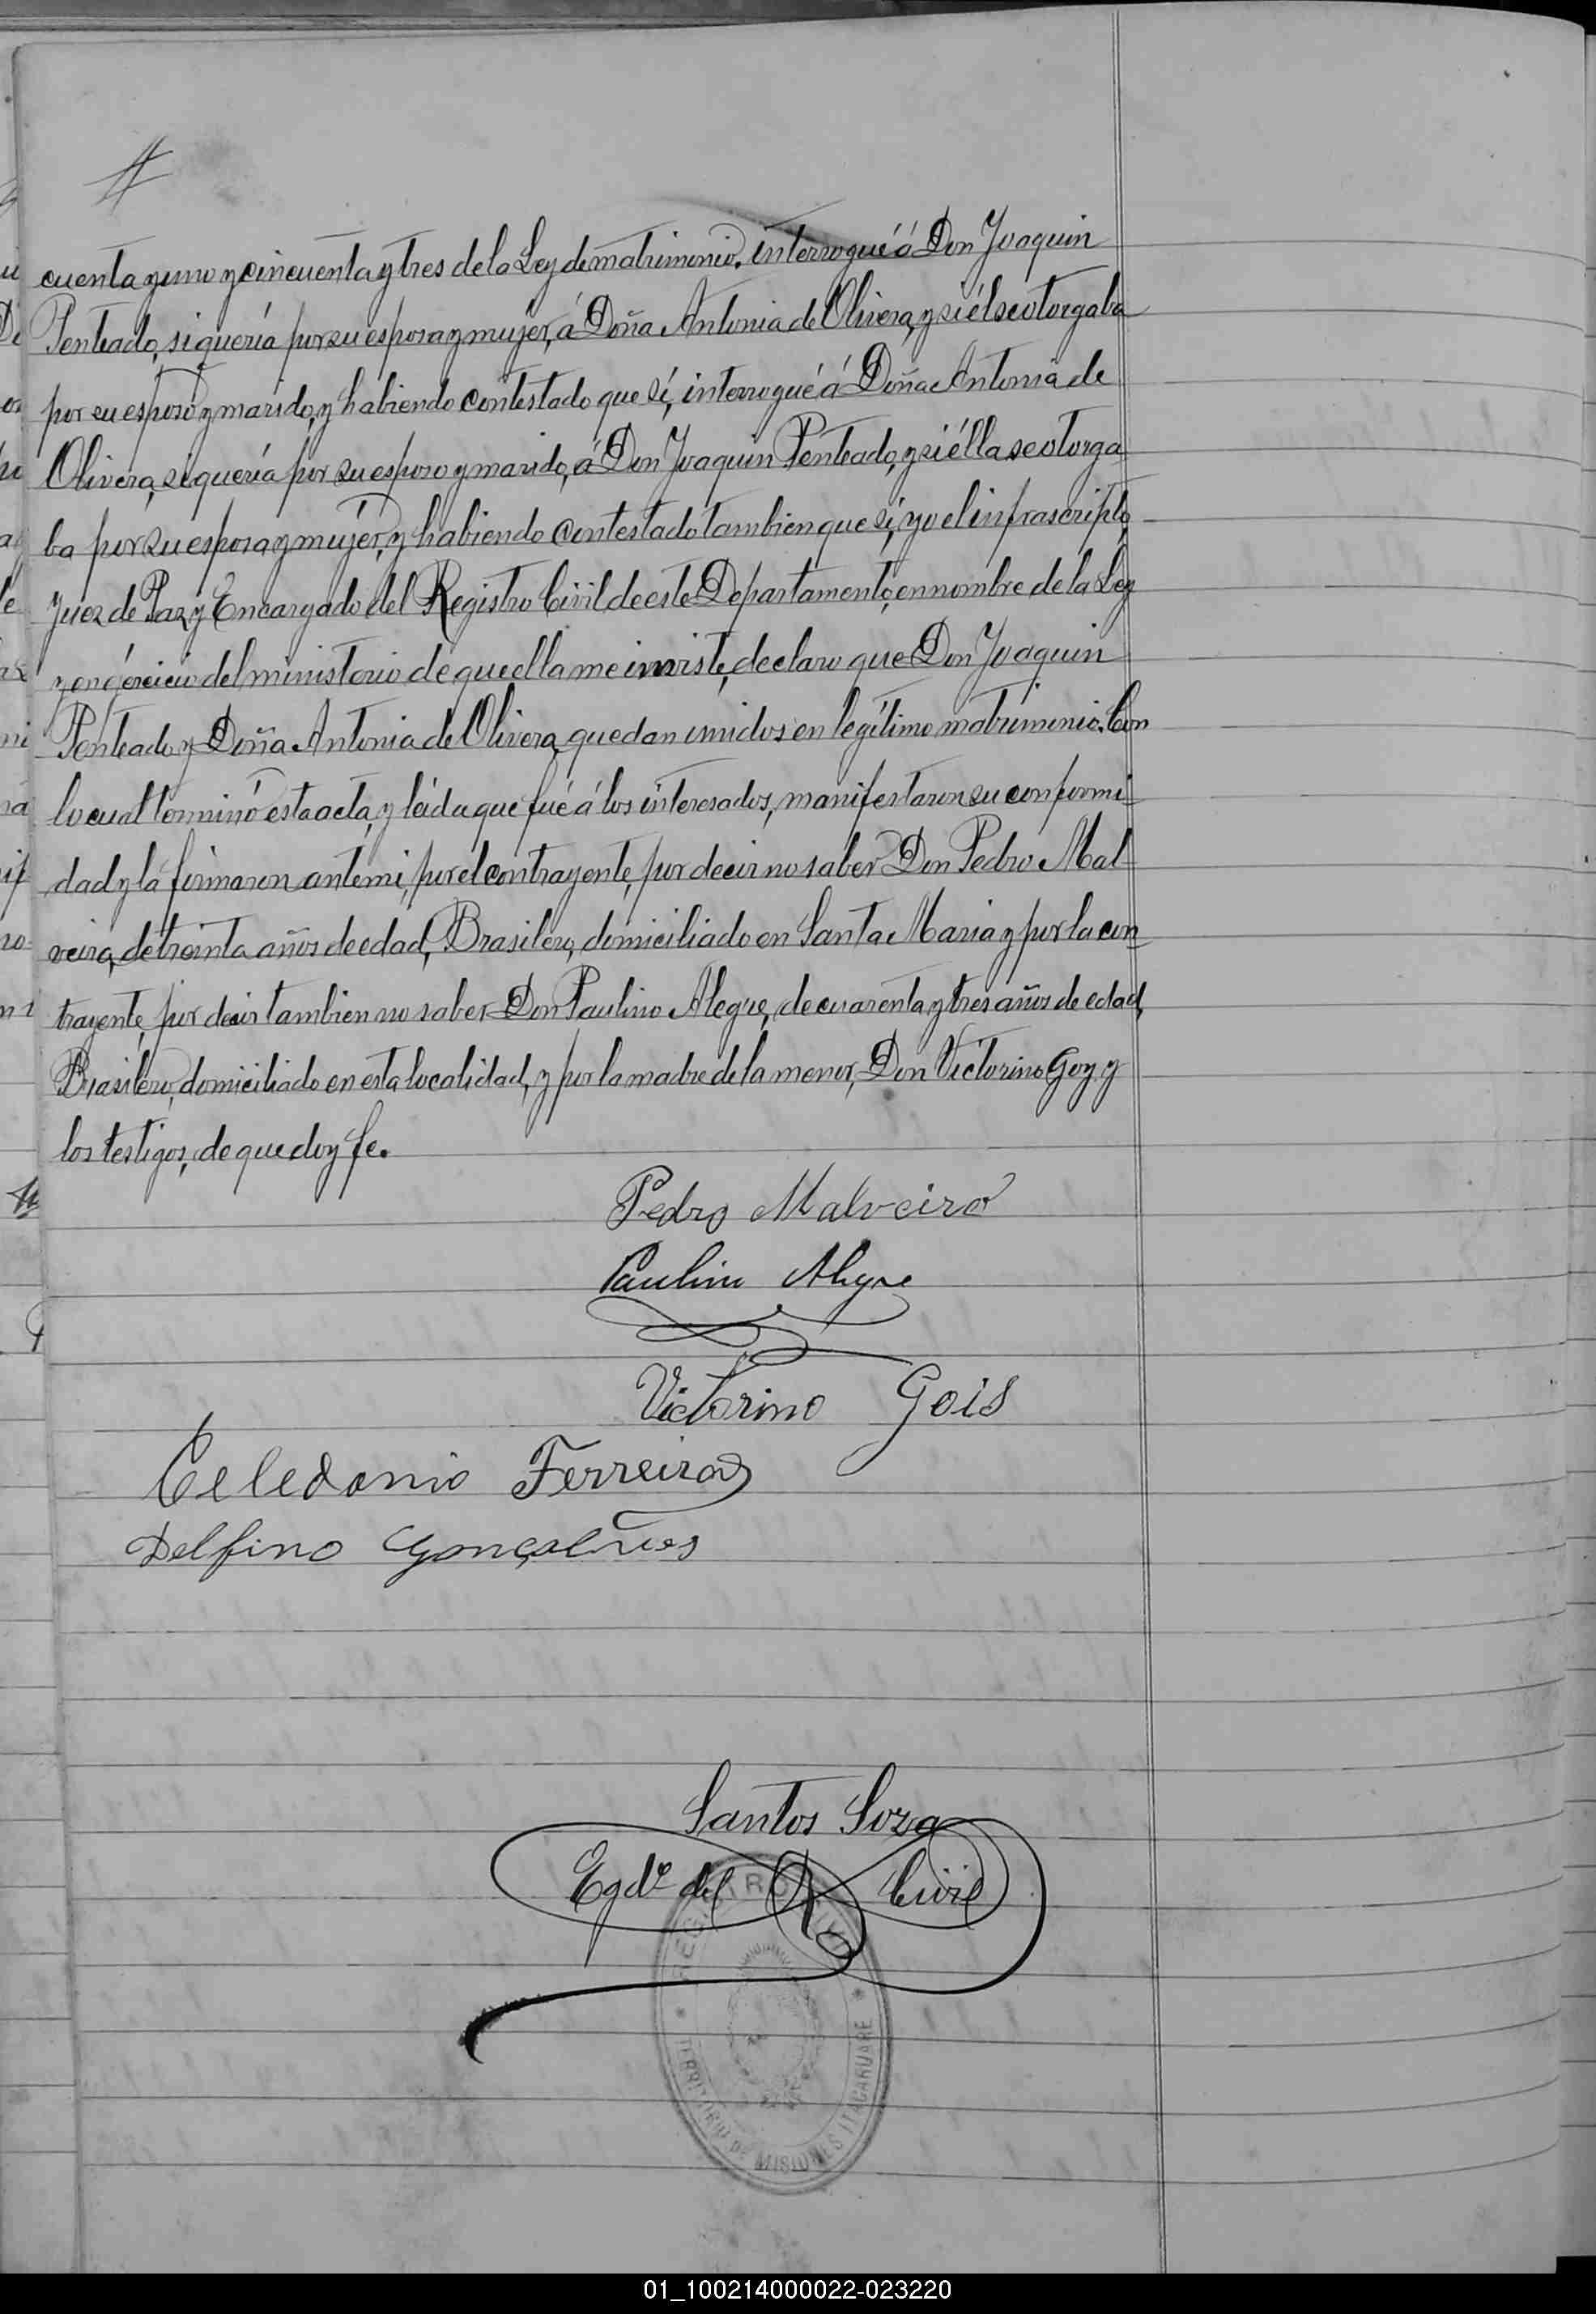 cuenta y uno y cincuenta y tres de la Ley de matrimonio, interrogué á Don Joaquin
Penteado, si quería por su esposa y mujer, á Doña Antonia de Olivera, y si él se otorgaba
por su esposo y marido, y habiendo contestado que sí, interrogué á Doña Antonia de
Olivera, si quería por su esposo y marido, á Don Joaquin Penteado, y si élla se otorga
ba por su esposa y mujer, y habiendo contestado tambien que sí, yo el infrascripto,
Juez de Paz y Encargado del Registro Civil de este Departamento, en nombre de la Ley
y en ejercicio del ministerio de que ella me inviste, declaro que Don Joaquin
Penteado y Doña Antonia de Olivera, quedan unidos en legítimo matrimonio. Con
lo cual terminó esta acta, y leida que fué á los interesados, manifestaron su conformi-
dad y la firmaron ante mi, por el contrayente, por decir no saber Don Pedro Mal-
veira, de treinta años de edad, Brasilero, domiciliado en Santa Maria y por la con
trayente, por decir tambien no saber Don Paulino Alegre, de cuarenta y tres años de edad,
Brasilero, domiciliado en esta localidad, y por la madre de la menor, Don Victorino Goy y
los testigos, de que doy fe.
Pedro Malveira
Paulino Alegre
Victorino Gois
Celedonio Ferreira
Delfino Gonçalves
Santos Soza
Egdo del R Civil
REGISTRO CIVIL
TERRITORIO DE MISIONES ITACARUARE
01_100214000022-023220